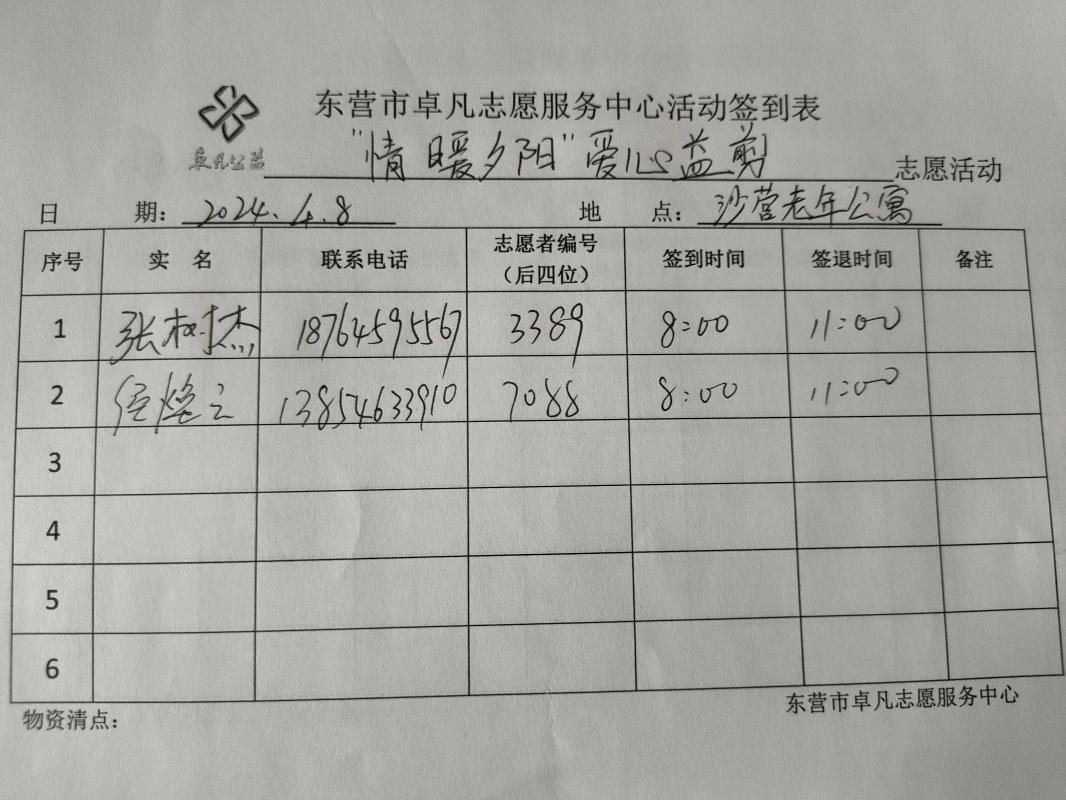 东营市卓凡志愿服务中心活动签到表
卓凡公益 "情暖夕阳"爱心益剪 志愿活动
日 期：2024.4.8 地 点：沙营老年公寓
序号 实 名 联系电话 志愿者编号（后四位） 签到时间 签退时间 备注
1 张树杰 18764595567 3389 8:00 11:00
2 13854633910 7088 8:00 11:00
3
4
5
6
物资清点： 东营市卓凡志愿服务中心